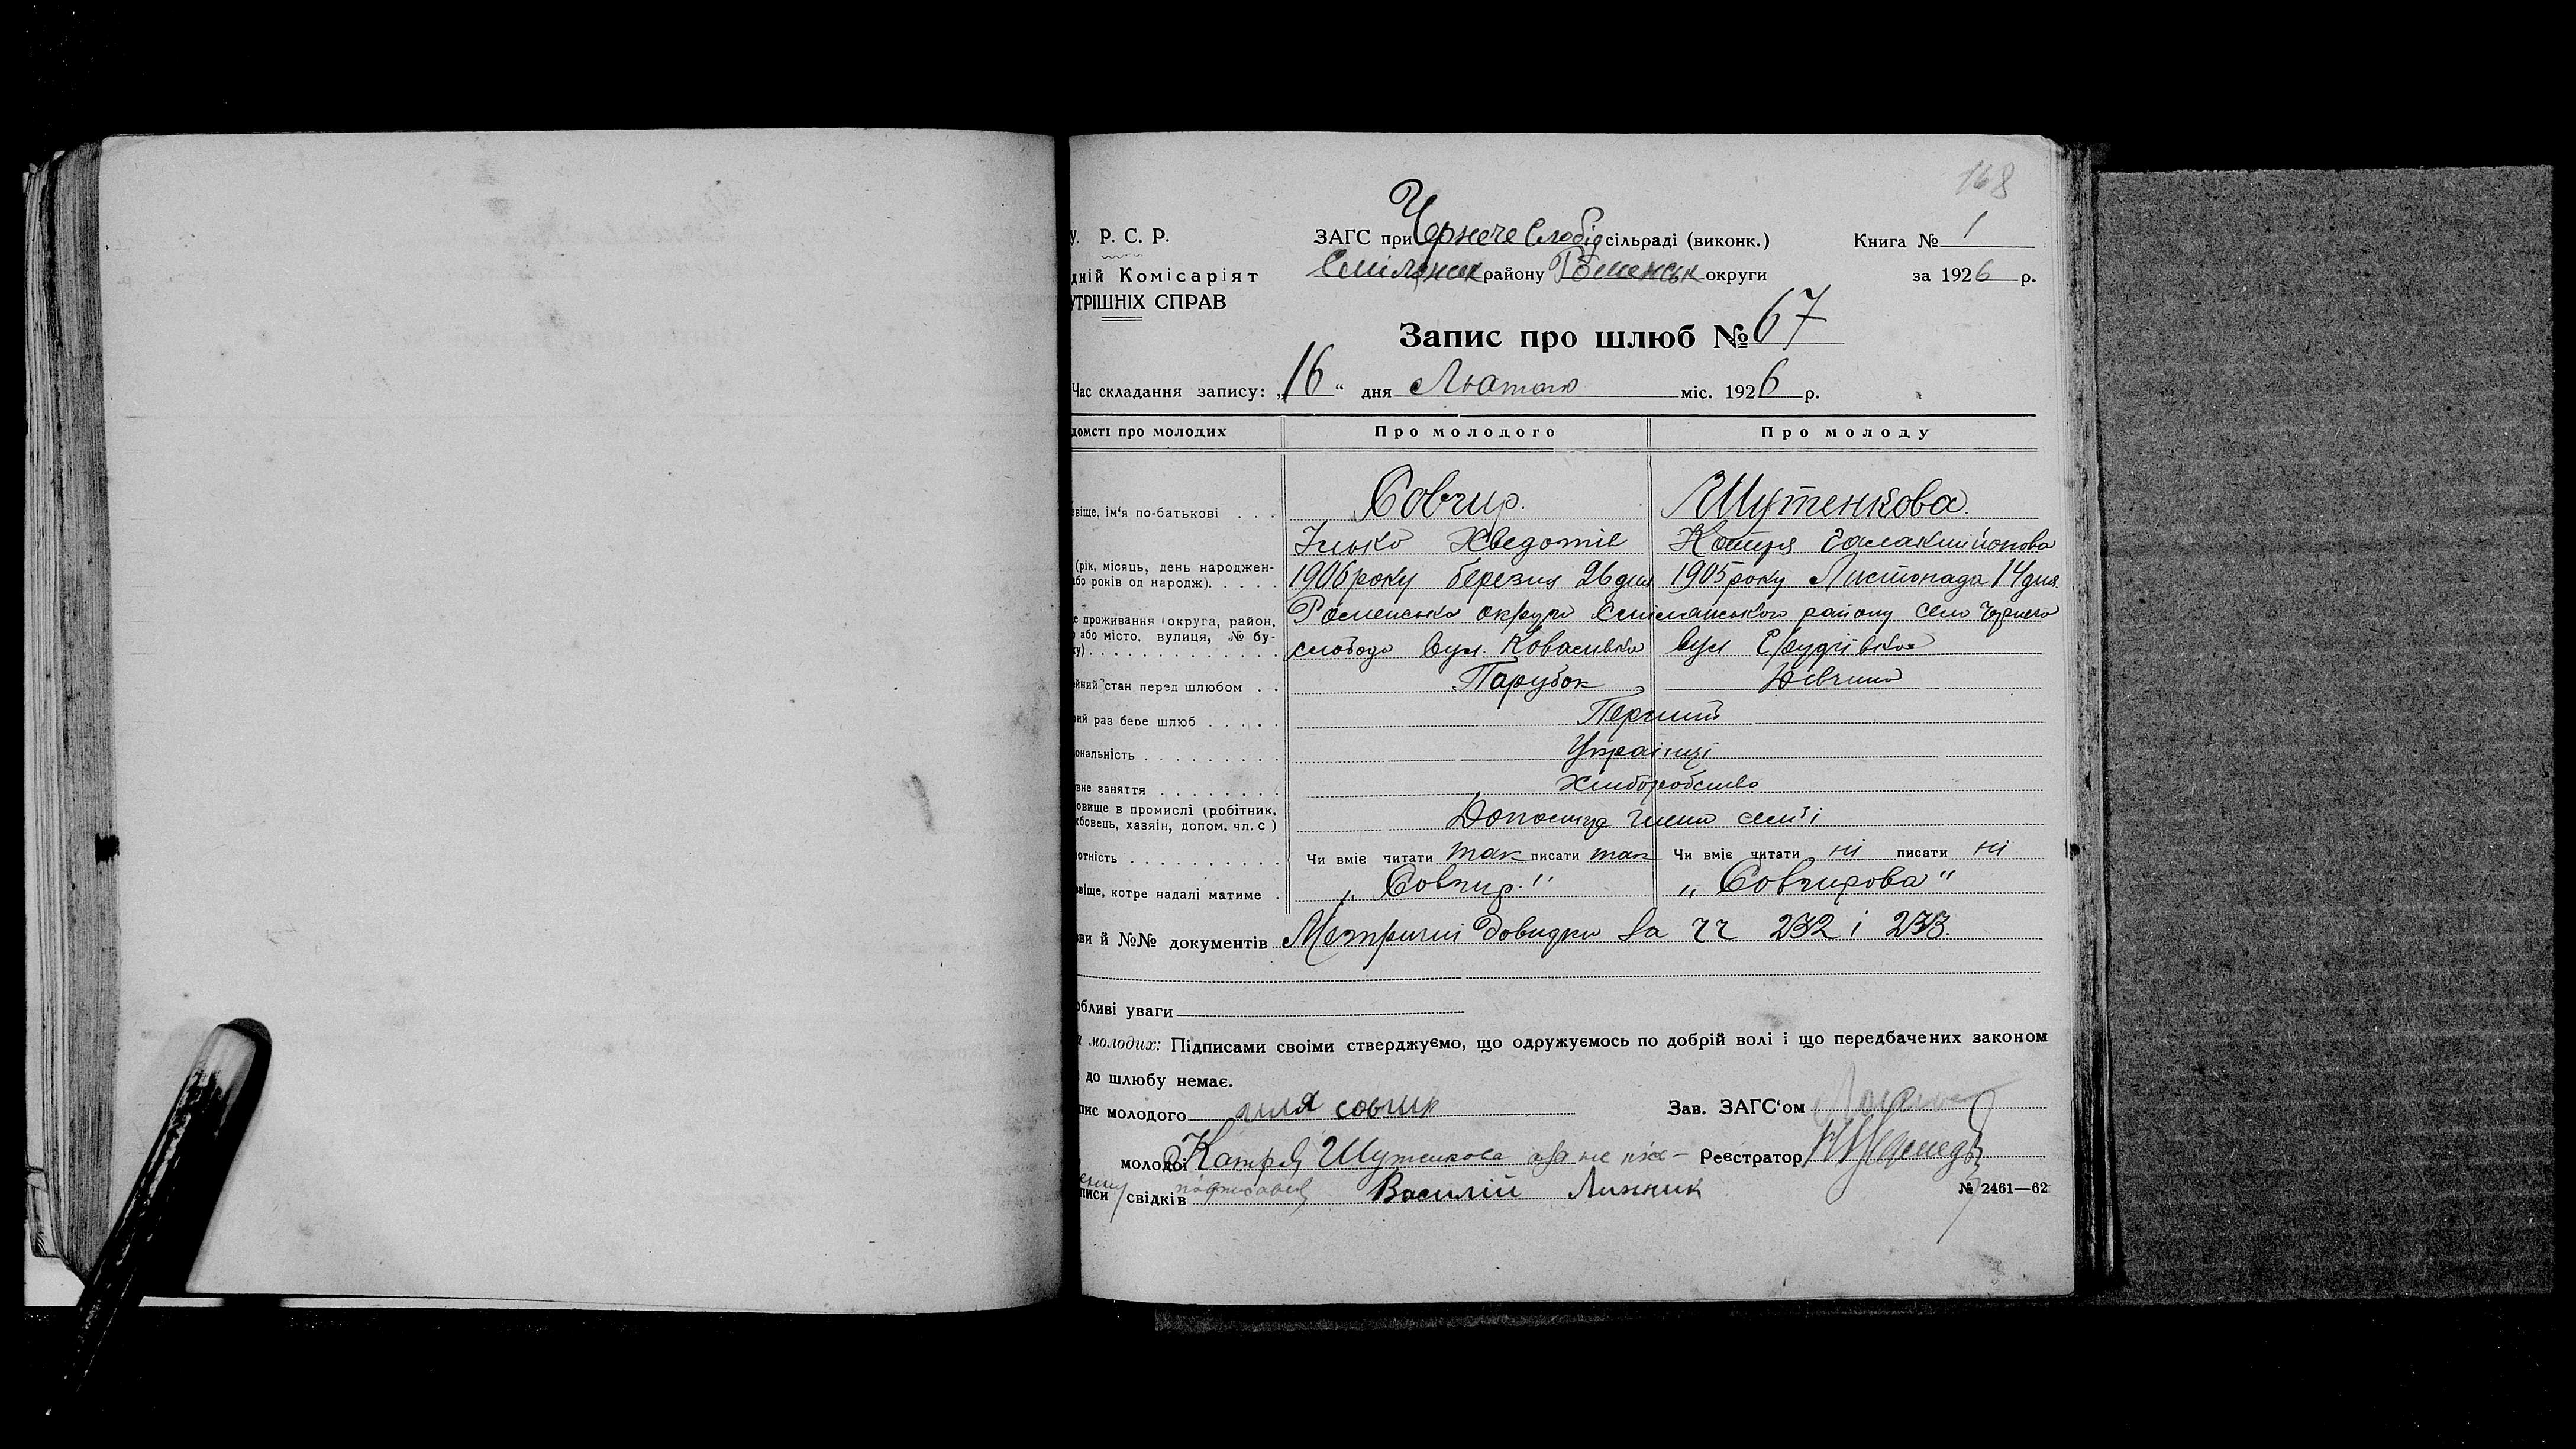 168
У. Р. С. Р. ЗАГС при Чернече Слобід сільраді (виконк.) Книга № 1
дній Комісаріят Смілянск району Роменськ округи за 1926 р.
УТРІШНІХ СПРАВ
Запис про шлюб № 67
Час складання запису: „16“ дня Лютого міс. 1926 р.
домсті про молодих Про молодого Про молоду
звіще, ім'я по-батькові . . . Совчир. Шутенкова.
Ілько Хведотів Катря
(рік, місяць, день народжен- 1906 року березня 26 дня 1905 року Листопада 14 дня
або років од народж). . . . .
Роменська округа Смілянського району село Чернеча
е проживання (округа, район,
о або місто, вулиця, № бу-
ку). . . . . . . . . . . . . слобода вул. Ковалівка вул
йний стан перед шлюбом . . Парубок Дівчина
рий раз бере шлюб . . . . . Перший
ональність . . . . . . . . . Українці
вне заняття . . . . . . . . Хліборобство
овище в промислі (робітник,
жбовець, хазяін, допом. чл. с ) Допомига члена семї
отність . . . . . . . . . . Чи вміє читати так писати так Чи вміє читати ні писати ні
звіще, котре надалі матиме . „Совчир.“ „Совчирова“
ви й №№ документів Метричні довидки за чч 232 і 233.
обливі уваги
а молодих: Підписами своіми стверджуємо, що одружуємось по добрій волі і що передбачених законом
до шлюбу немає.
пис молодого илля совчир Зав. ЗАГС‘ом
молодоі Катря Шутенкова а за не пис– Реєстратор
писи свідків подписався Василій Лижник № 2461—62